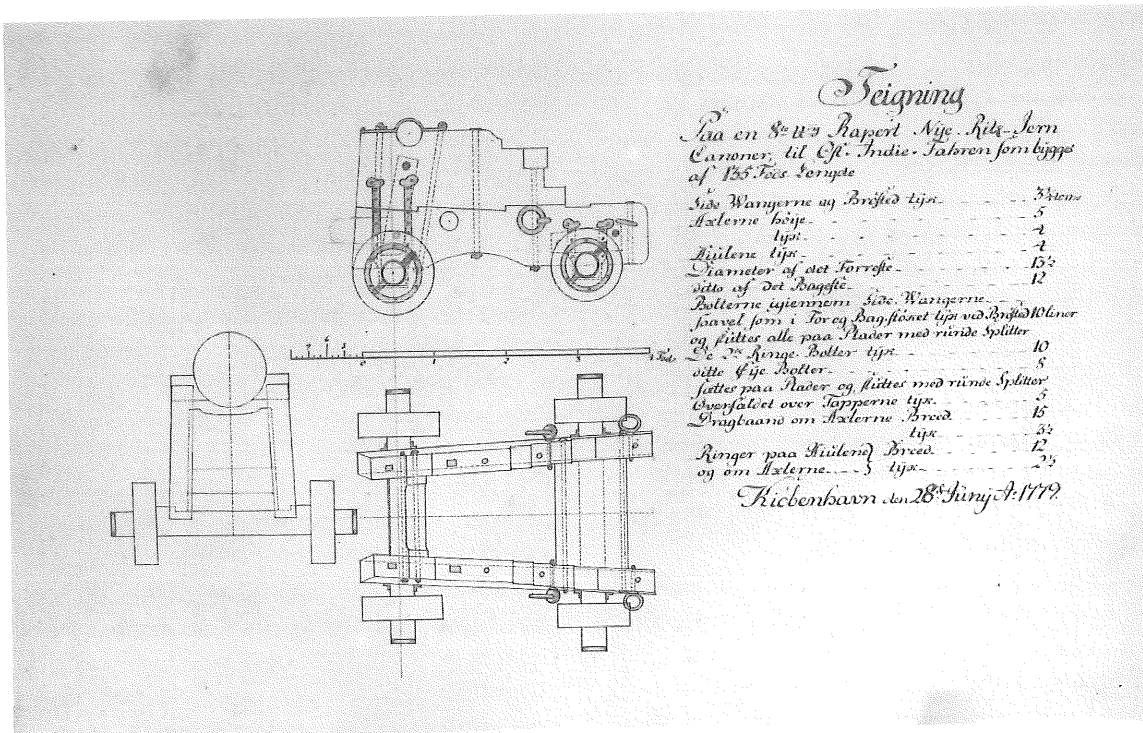 Teigning
Paa en 8te U's Rapert Nye-Rits-Jern
Canoner, til Ost-Indie-Fahren som bÿgges
af 135 Fods Længde
Side Wangerne og Brösted tÿk 3½
Axlerne höÿe 5
tÿk 4
Hiulene tÿk 4
Diameter af det Forreste 13½
ditto af det Bageste 12
Bolterne igiennem Side Wangerne
saavel som i For og Bag tÿk ved Brösted 10 liner
og slüttes alle paa Plader med ründe Splitter
De Ringe Bolter tÿk 10
ditto Öÿe Bolter 8
sættes paa Plader og slüttes med ründe Splitter
Overfaldet over Tapperne tÿk 5
Dragbaand om Axlerne Breed 15
tÿk 3½
Ringer paa Hiulene } Breed 12
og om Axlerne } tÿk 2½
Kiöbenhavn den 28de Junÿ A: 1779.
7 6 5 0 1 2 3 4 Fod